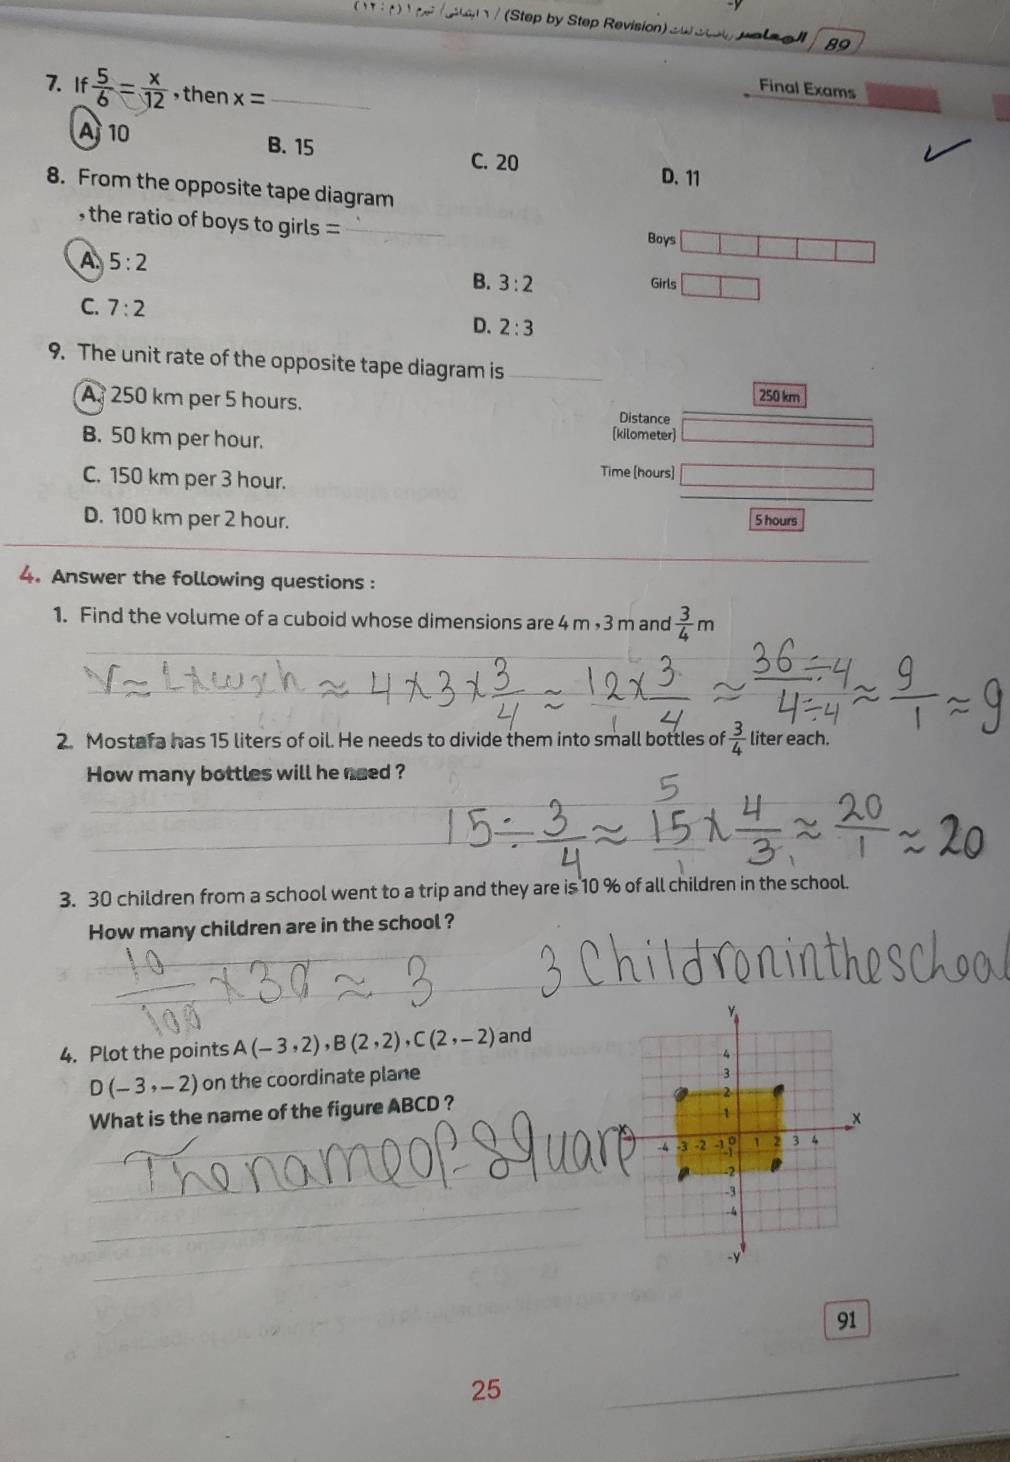 -y
المعاصر رياضيات لغات (Step by Step Revision) / ٦ ابتدائي / تيرم ١ (م : ١٢)
89
Final Exams
7. If 5/6 = x/12 , then x =
A. 10
B. 15
C. 20
D. 11
8. From the opposite tape diagram
, the ratio of boys to girls =
Boys
Girls
A. 5 : 2
B. 3 : 2
C. 7 : 2
D. 2 : 3
9. The unit rate of the opposite tape diagram is
A. 250 km per 5 hours.
B. 50 km per hour.
C. 150 km per 3 hour.
D. 100 km per 2 hour.
250 km
Distance
(kilometer)
Time (hours)
5 hours
4. Answer the following questions :
1. Find the volume of a cuboid whose dimensions are 4 m , 3 m and 3/4 m
V ≈ L x w x h ≈ 4 x 3 x 3/4 ≈ 12/1 x 3/4 ≈ 36 ÷ 4 / 4 ÷ 4 ≈ 9/1 ≈ 9
2. Mostafa has 15 liters of oil. He needs to divide them into small bottles of 3/4 liter each.
How many bottles will he need ?
5
15 ÷ 3/4 ≈ 15/1 x 4/3 ≈ 20/1 ≈ 20
1
3. 30 children from a school went to a trip and they are is 10 % of all children in the school.
How many children are in the school ?
10/100 x 30 ≈ 3 3 Childron in the schoal
4. Plot the points A (– 3 , 2) , B (2 , 2) , C (2 , – 2) and
D (– 3 , – 2) on the coordinate plane
What is the name of the figure ABCD ?
The name of Square
y
4
3
2
1
-x -4 -3 -2 -1 0 1 2 3 4 x
-1
-2
-3
-4
-y
91
25